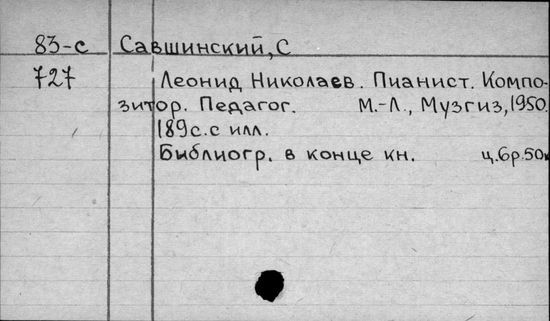 83-с Савшинский, С
727 Леонид Николаев. Пианист. Компо-
зитор. Педагог. М.-Л., Музгиз, 1950.
189с. с илл.
Библиогр. в конце кн. ц. 6р. 50к